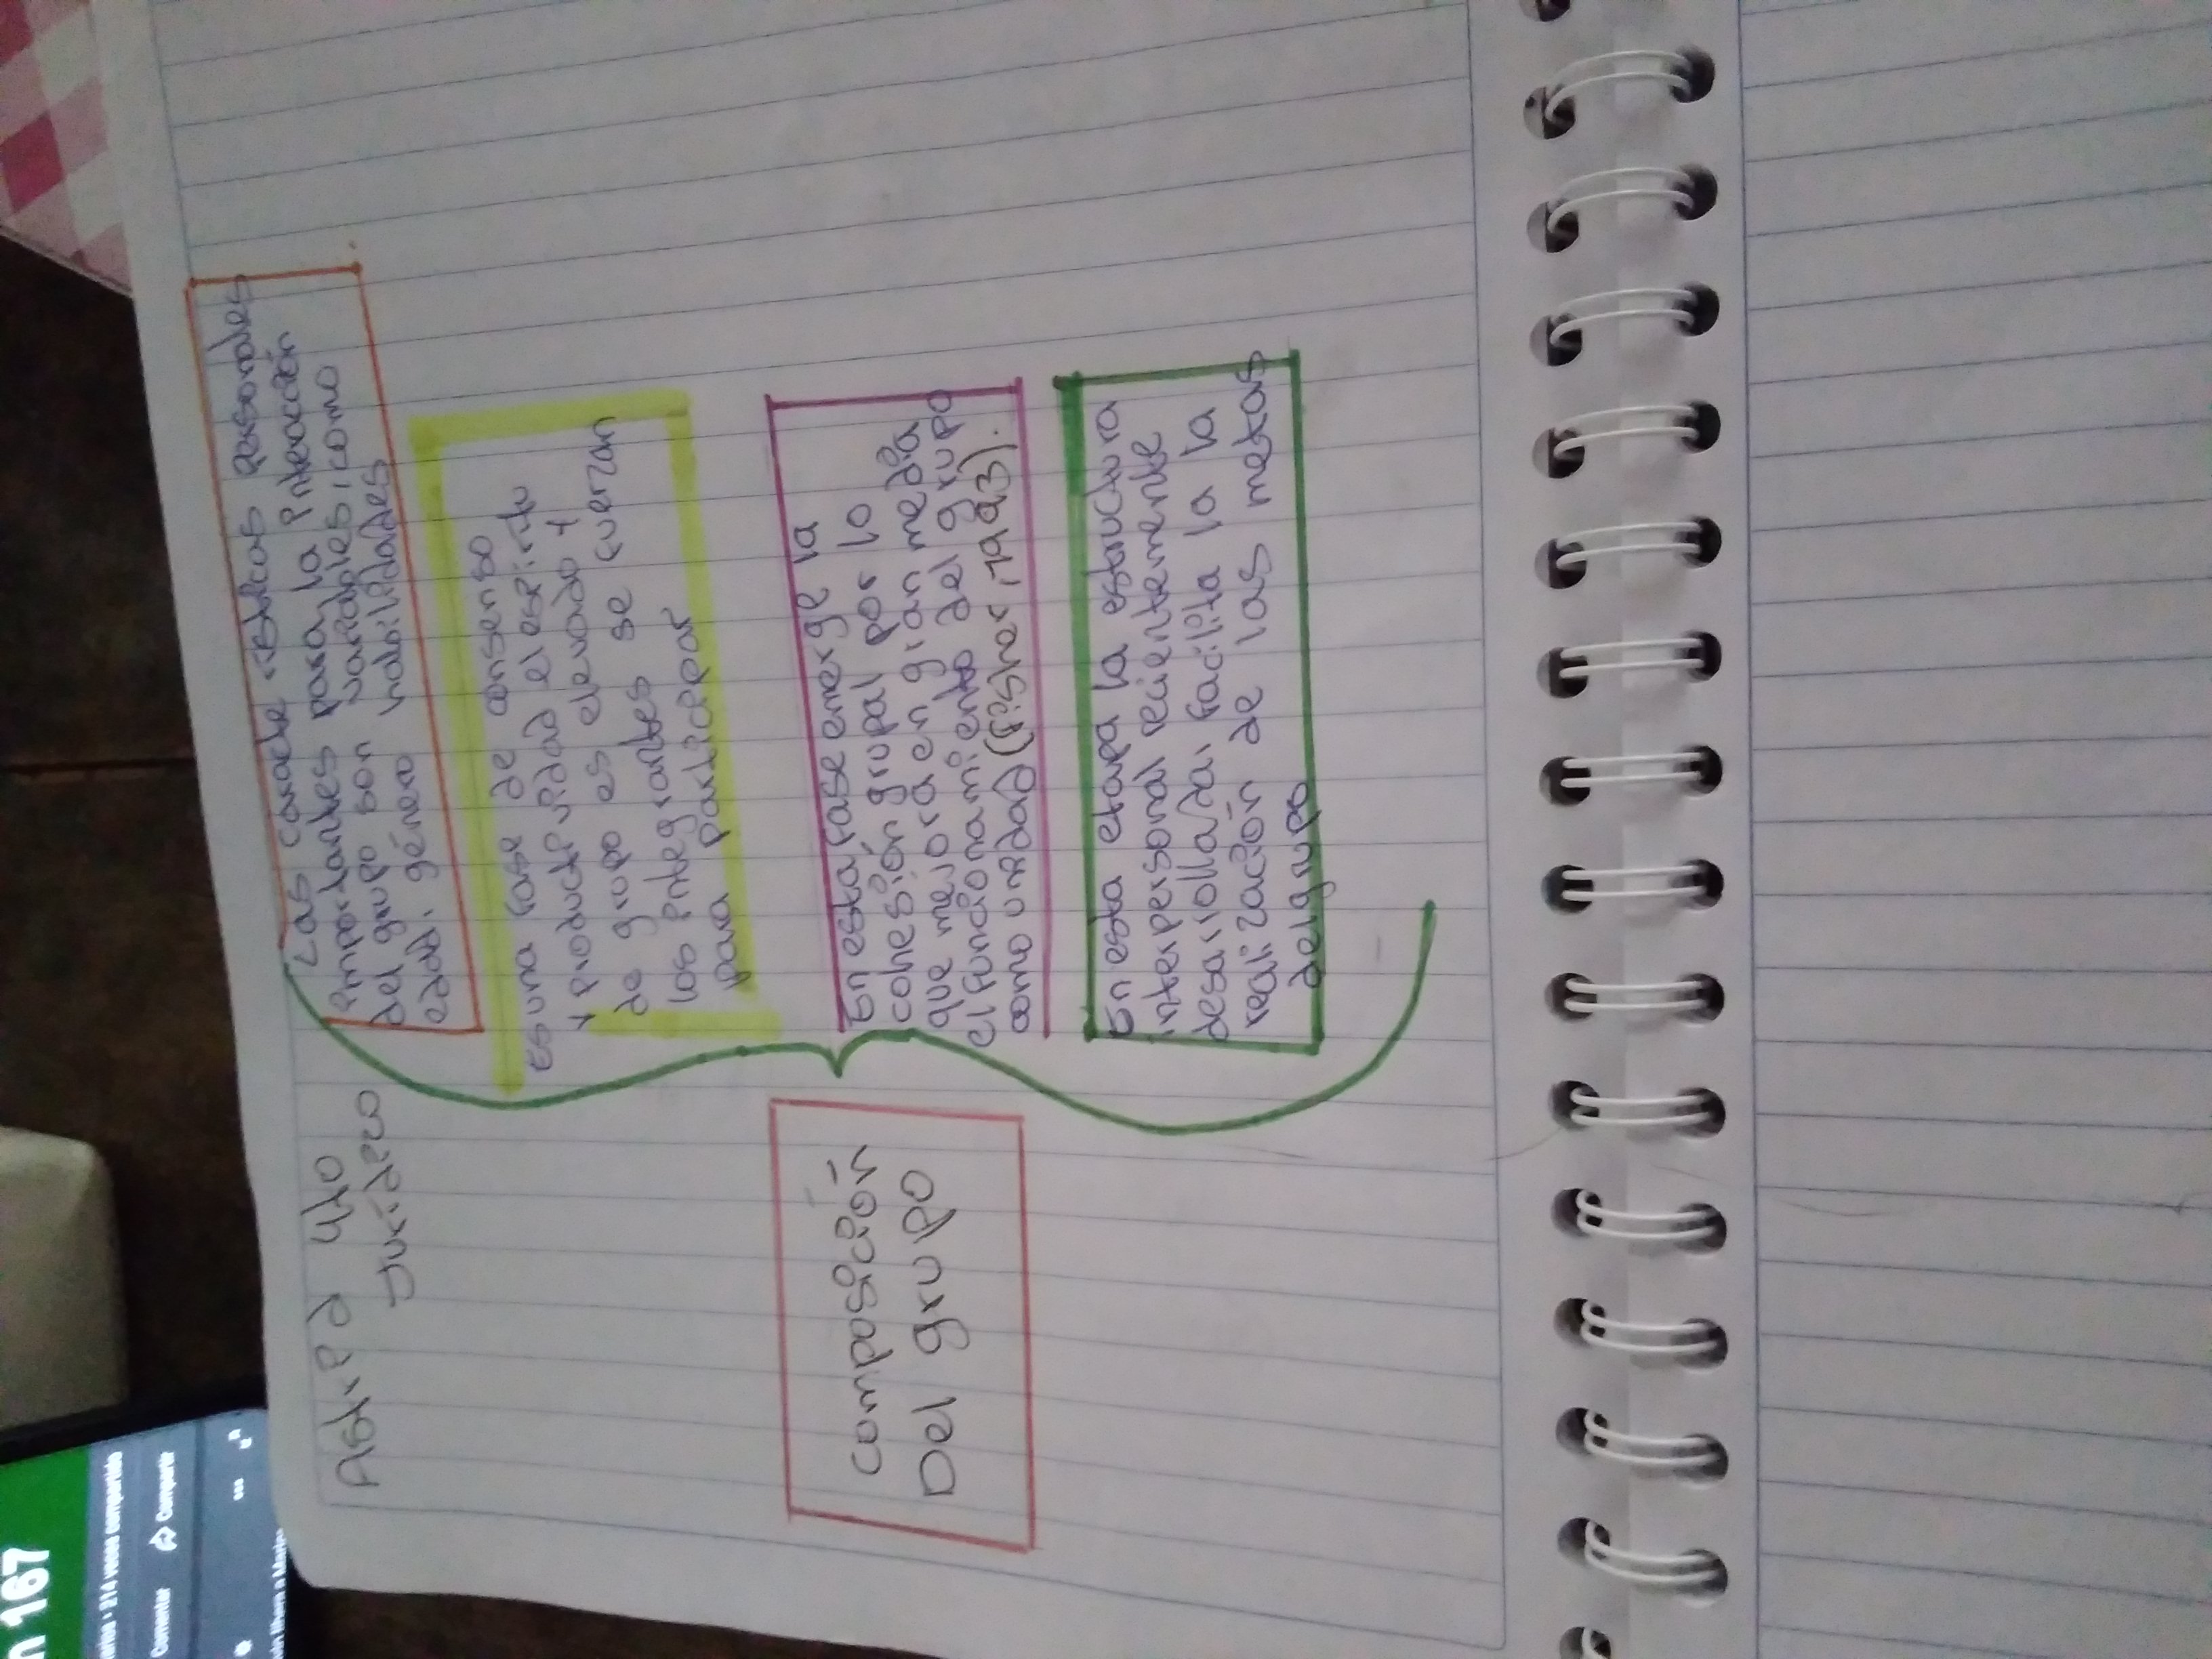 Astrid 4to
Jurídico
Composición
Del grupo
Las caracte rísticas personales
importantes para la interacción
del grupo son variables, como
edad, género habilidades
es una fase de consenso
y productividad el espíritu
de grupo es elevado y
los integrantes se fuerzan
para participar
En esta fase emerge la
cohesión grupal por lo
que mejora en gran media
el funcionamiento del grupo
como unidad (Fisher, 1993).
En esta etapa la estructura
interpersonal recientemente
desarrollada, facilita la la
realización de las metas
del grupo
n 167
214 veces compartido
Comentar
Compartir